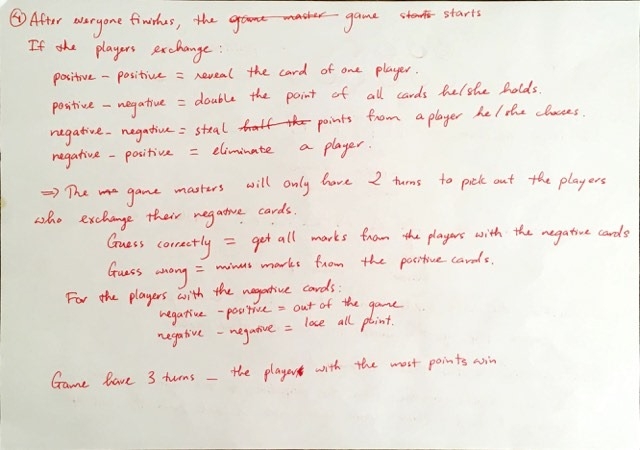 ④ After everyone finishes, the game master game starts starts
If the players exchange :
positive - positive = reveal the card of one player.
positive - negative = double the point of all cards he/she holds.
negative - negative = steal half the points from a player he/she chooses.
negative - positive = eliminate a player.
⇒ The game masters will only have 2 turns to pick out the players
who exchange their negative cards.
Guess correctly = get all marks from the players with the negative cards
Guess wrong = minus marks from the positive cards.
For the players with the negative cards:
negative - positive = out of the game
negative - negative = lose all point.
Game have 3 turns - the player with the most points win